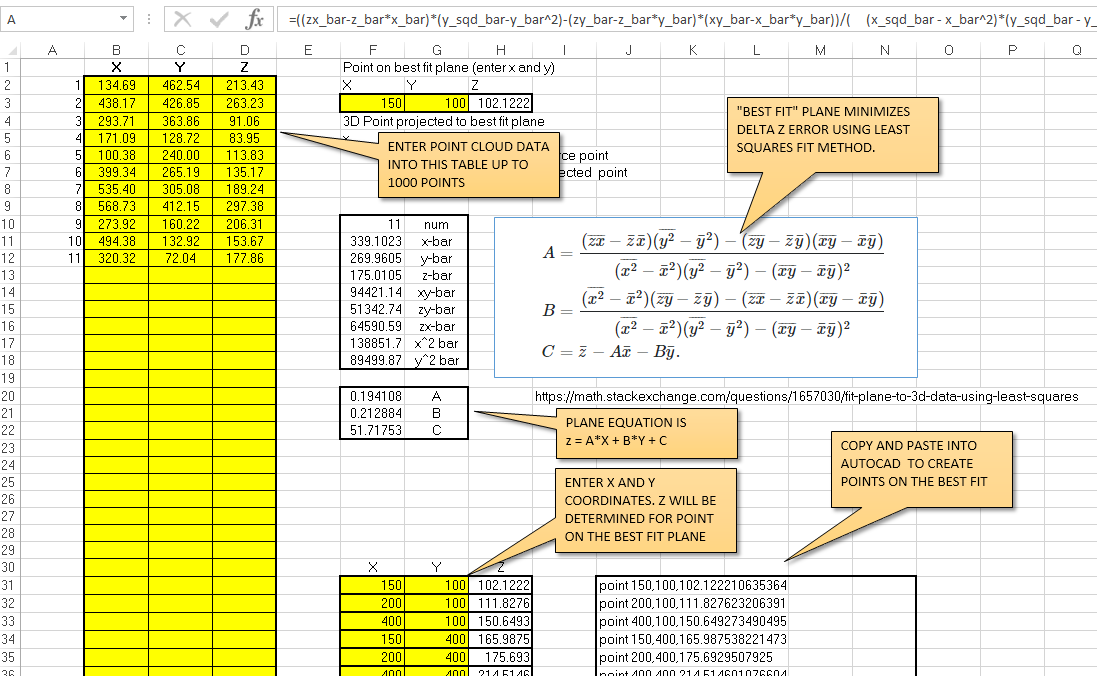 A fx =((zx_bar-z_bar*x_bar)*(y_sqd_bar-y_bar^2)-(zy_bar-z_bar*y_bar)*(xy_bar-x_bar*y_bar))/( (x_sqd_bar - x_bar^2)*(y_sqd_bar - y_
A B C D E F G H I J K L M N O P Q
1 X Y Z Point on best fit plane (enter x and y)
2 1 134.69 462.54 213.43 X Y Z
3 2 438.17 426.85 263.23 150 100 102.1222
4 3 293.71 363.86 91.06 3D Point projected to best fit plane
5 4 171.09 128.72 83.95
6 5 100.38 240.00 113.83 point
7 6 399.34 265.19 135.17 point
8 7 535.40 305.08 189.24
9 8 568.73 412.15 297.38
10 9 273.92 160.22 206.31 11 num
11 10 494.38 132.92 153.67 339.1023 x-bar
12 11 320.32 72.04 177.86 269.9605 y-bar
13 175.0105 z-bar
14 94421.14 xy-bar
15 51342.74 zy-bar
16 64590.59 zx-bar
17 138851.7 x^2 bar
18 89499.87 y^2 bar
19
20 0.194108 A https://math.stackexchange.com/questions/1657030/fit-plane-to-3d-data-using-least-squares
21 0.212884 B
22 51.71753 C
23
24
25
26
27
28
29
30 X Y Z
31 150 100 102.1222 point 150,100,102.122210635364
32 200 100 111.8276 point 200,100,111.827623206391
33 400 100 150.6493 point 400,100,150.649273490495
34 150 400 165.9875 point 150,400,165.987538221473
35 200 400 175.693 point 200,400,175.6929507925
36 400 400 214.5146 point 400,400,214.514601076604
ENTER POINT CLOUD DATA
INTO THIS TABLE UP TO
1000 POINTS
"BEST FIT" PLANE MINIMIZES
DELTA Z ERROR USING LEAST
SQUARES FIT METHOD.
A = (z̅x̅ − z̄ x̄)(y̅²̅ − ȳ²) − (z̅y̅ − z̄ ȳ)(x̅y̅ − x̄ȳ) / (x̅²̅ − x̄²)(y̅²̅ − ȳ²) − (x̅y̅ − x̄ȳ)²
B = (x̅²̅ − x̄²)(z̅y̅ − z̄ ȳ) − (z̅x̅ − z̄ x̄)(x̅y̅ − x̄ȳ) / (x̅²̅ − x̄²)(y̅²̅ − ȳ²) − (x̅y̅ − x̄ȳ)²
C = z̄ − Ax̄ − Bȳ.
PLANE EQUATION IS
z = A*X + B*Y + C
ENTER X AND Y
COORDINATES. Z WILL BE
DETERMINED FOR POINT
ON THE BEST FIT PLANE
COPY AND PASTE INTO
AUTOCAD TO CREATE
POINTS ON THE BEST FIT